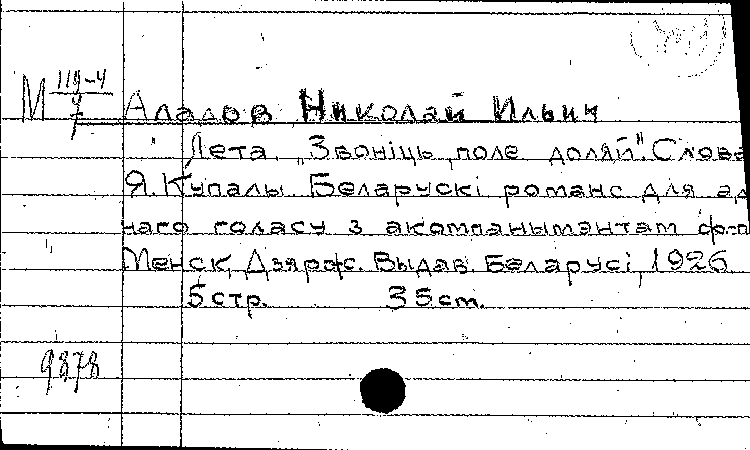 М 119-4/7 Аладов Николай Ильич
Лета. „Звоніць поле доляй". Слова
Я. Купалы. Беларускі романс для ад
наго голасу з акомпаныментам ф-п
Менск, Дзярж. Выдав. Беларусі, 1926
5 стр. 35 cm.
9878